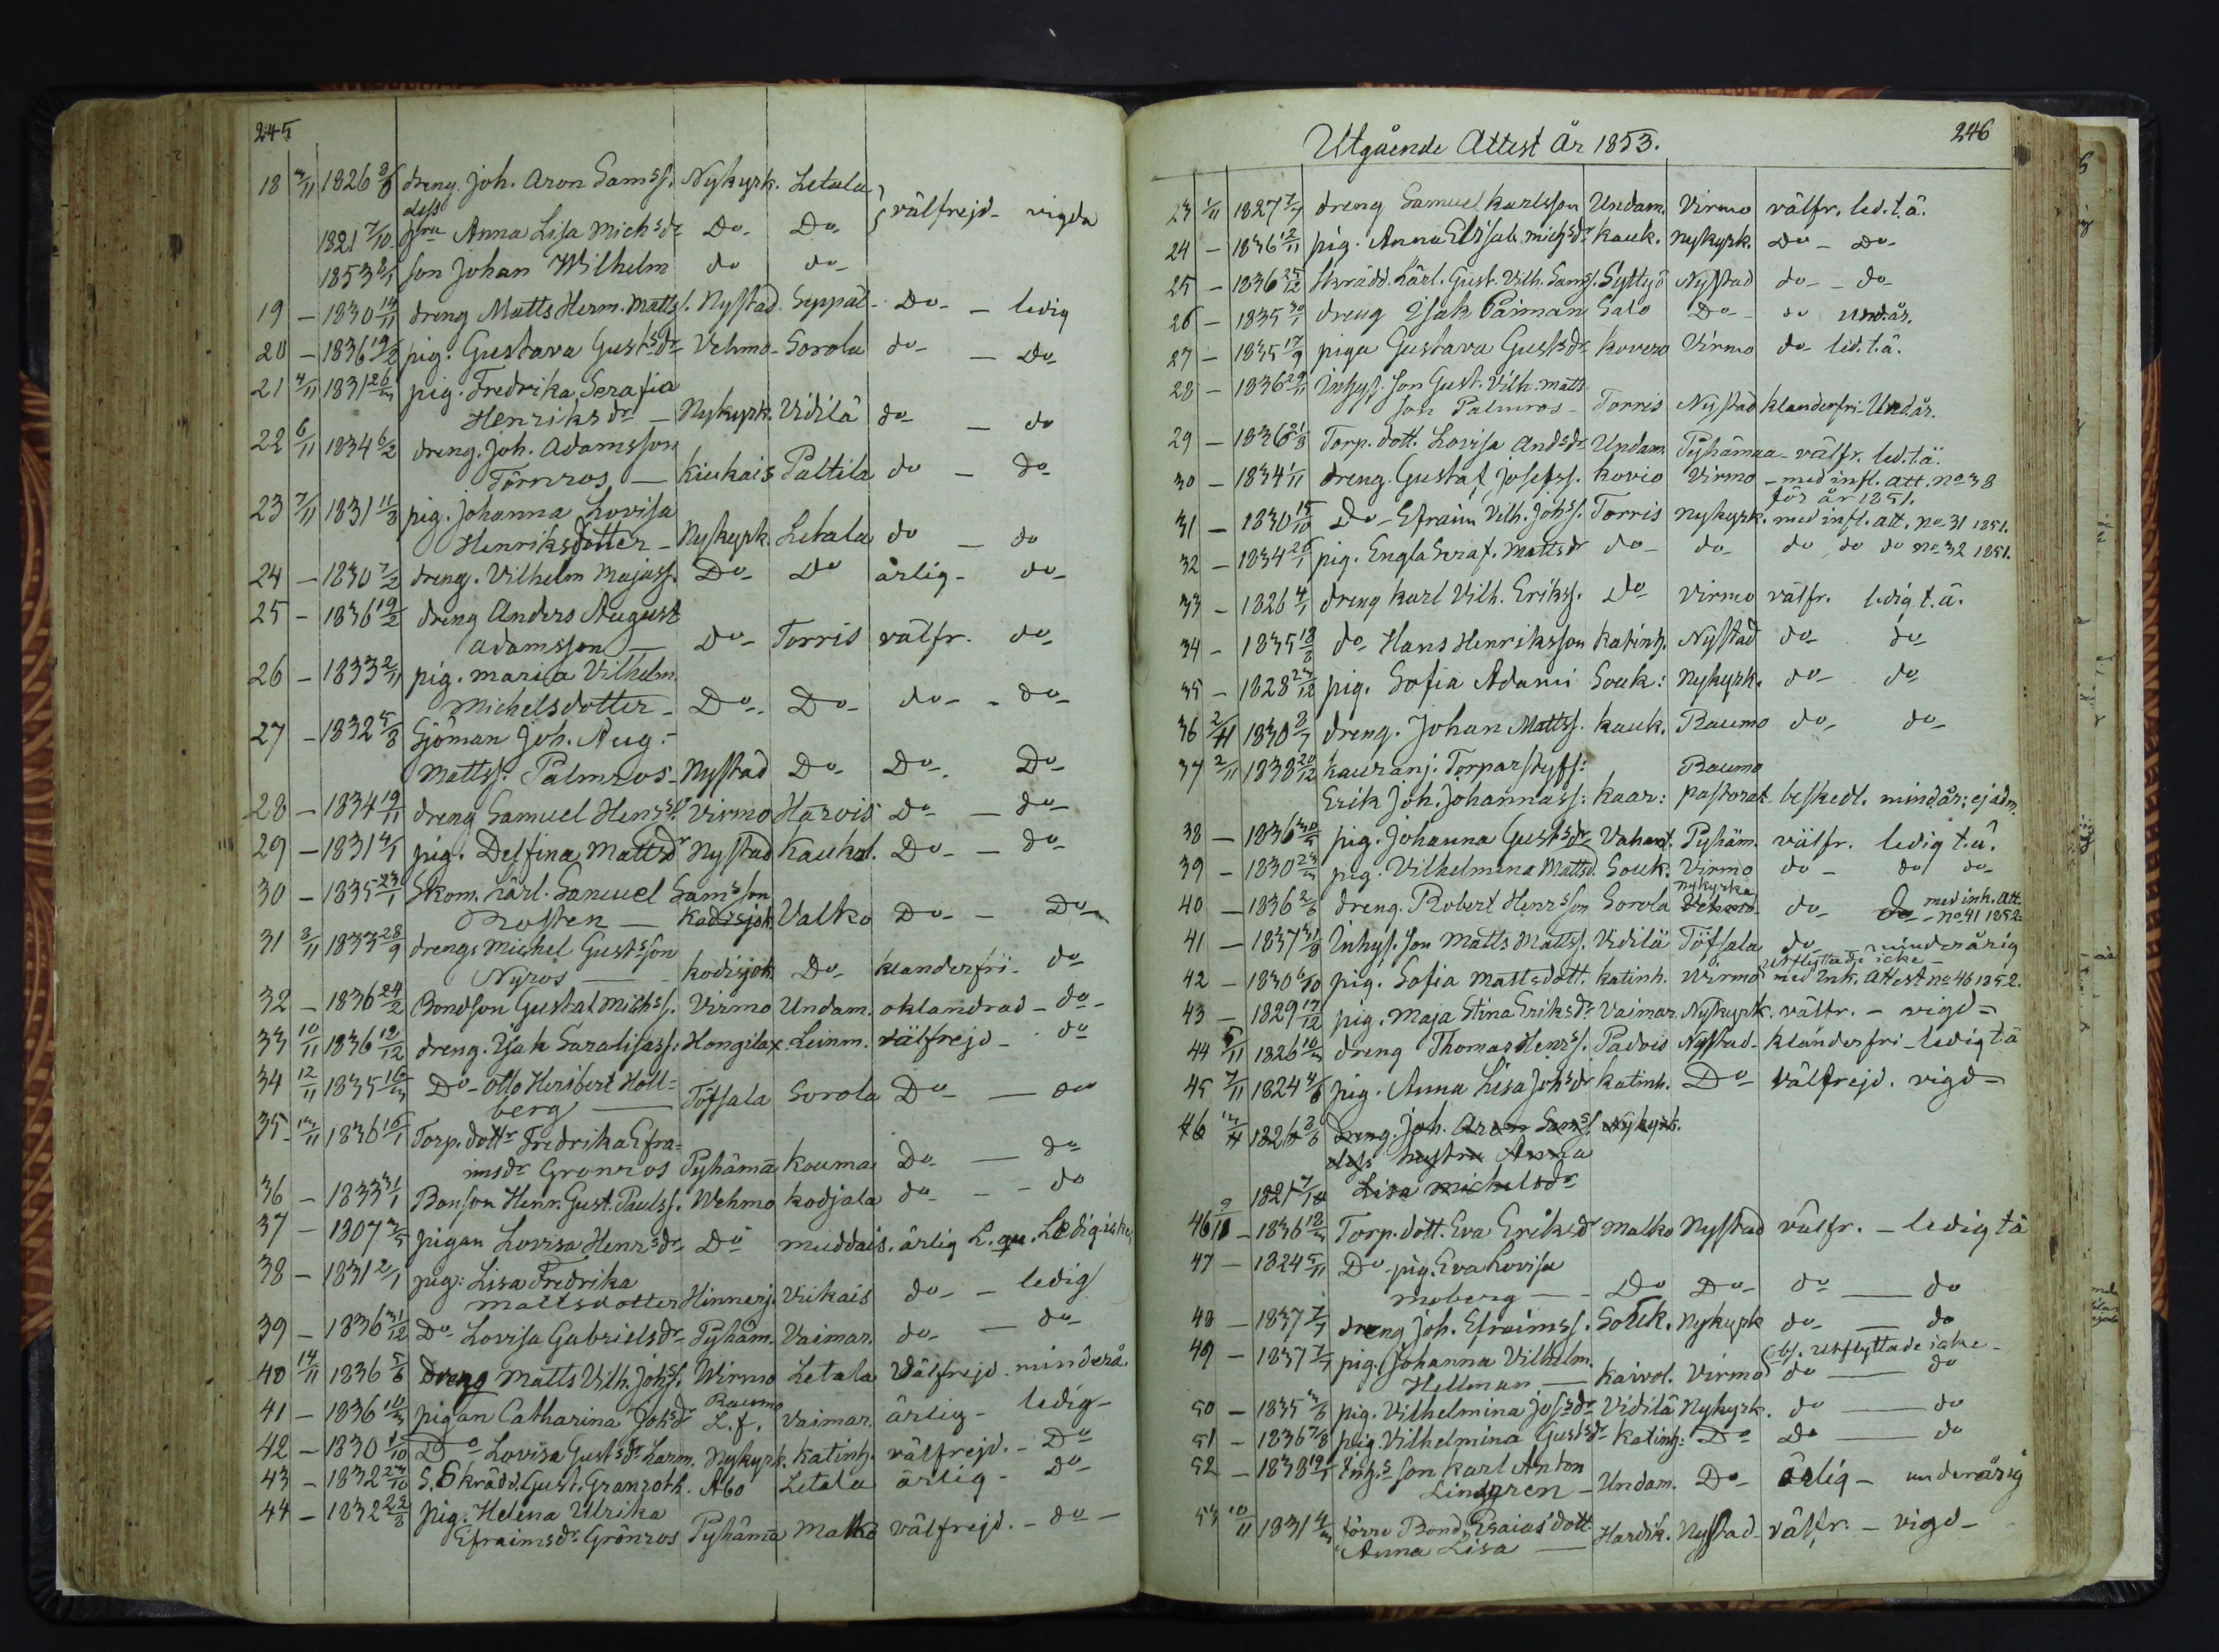 245
18 3/11 1826 8/6 dreng. Joh. Aron Sams:s. Nykyrk. Letala
dess
1821 7/10 hru Anna Lisa Michsdr Do Do välfrejd - vigda
1853 8/1 son Johan Wilhelm do do
19 - 1830 14/11 dreng Matts Herm. Mattss. Nystad. Seppäl - Do - ledig
20 - 1836 19/2 pig. Gustava Gustsdr Vehmo - Sorola do - Do
21 4/11 1831 26/3 pig. Fredrika Serafia
Henriksdr - Nykyrk. Vidilä do - do
22 6/11 1834 6/2 dreng. Joh. Adamsson
Törnros - Kiukais Paltila do - do
23 7/11 1831 11/8 pig. Johanna Lovisa
Henriksdotter - Nykyrk. Letala do - do
24 - 1830 7/2 dreng. Vilhelm Majass. Do Do ärlig - do
25 - 1836 19/2 dreng Anders August
Adamsson - Do Torris välfr. do
26 - 1833 2/11 pig. Maria Vilhelm.
Michelsdotter - Do Do do - do
27 - 1832 5/8 Sjöman Joh. Aug.
Mattss. Palmros - Nystad Do Do Do
28 - 1834 19/11 dreng Samuel Henrss. Virmo Harvois Do - do
29 - 1831 4/1 pig. Delfina Mattsdr Nystad Kaukol. Do - do
30 - 1835 23/1 Skom. lärl. Samuel Samsson
Rosten - Kodisjok Valko Do - Do
31 8/11 1833 28/9 drengs Michel Gustsson
Nyros - Kodisjok Do klanderfri - do
32 - 1836 24/2 Bondson Gustaf Michss. Virmo Undam. oklandrad - do
33 10/11 1836 12/12 dreng. Isak Saralisass: Hongilax. Leinm. välfrejd - do
34 12/11 1835 16/3 Do - Otto Heribert Holl=
berg - Töfsala Sorola Do - do
35 13/11 1836 16/1 Torp. dottr Fredrika Efra=
imsdr Gronros Pyhämä Kouma Do - do
36 - 1833 31/1 Bonson Henr. Gust. Paulss. Wehmo Kodjala do - do
37 - 1807 3/5 pigan Lovisa Henrsdr Do muddais. ärlig L. qu. Ledig
38 - 1831 2/1 pig: Lisa Fredrika
Mattsdotter Hinnerj. Viikais do - ledig
39 - 1836 31/12 Do Lovisa Gabrielsdr Pyhäm. Vaimar. do - do
40 14/11 1836 5/6 Dreng Matts Vilh. Johss. Wirmo Letala Välfrejd. minderå.
41 - 1836 10/3 pigan Catharina Johsdr Raumo L.f. Vaimar. ärlig - ledig -
42 - 1830 1/10 Do Lovisa Gustsdr Larm. Nykyrk. Katinh. välfrejd. - Do
43 - 1832 23/10 S. Skrädd. Gust. Granroth. Åbo Letala ärlig - Do
44 - 1832 22/8 pig. Helena Ulrika
Efraimsdr Grönros Pyhämä Malko välfrejd. - do -
Utgående Attest År 1853. 246
23 1/11 1827 7/7 dreng Samuel Karlsson Undam. Virmo välfr. led. t. ä.
24 - 1836 12/11 pig. Anna Elisab. michsdr Kauk. Nykyrk. Do - Do
25 - 1836 25/12 Skrädd. Lärl. Gust. Vilh. Sams. Syttyö Nystad do - do
26 - 1835 30/1 dreng Isak Päiman Salo Do - do und.år.
27 - 1835 17/9 piga Gustava Gustsdr Kovero Virmo do led. t. ä.
28 - 1836 29/11 Inhys. son Gust. Vilh. Matts
son Palmros - Torris Nystad klanderfri - Und.år.
29 - 1836 21/8 Torp. dott. Lovisa Andsdr Undam. Pyhämaa - välfr. led. t. ä.
30 - 1834 1/11 dreng. Gustaf Josefss. Kovio Virmo - med infl. att. no 38
för år 1851.
31 - 1830 15/10 Do - Efraim Vilh. Johss. Torris Nykyrk. med infl. att. no 31 1851.
32 - 1834 26/1 pig. Engla Seraf. Mattsdr do do do do do no 32 1851.
33 - 1826 4/1 dreng Karl Vilh. Erikss. Do Virmo välfr. ledig t. ä.
34 - 1835 18/8 do Hans Henriksson Katinh. Nystad do do
35 - 1828 23/12 pig. Sofia Adami Souk: Nykyrk. do do
36 2/11 1830 8/7 dreng. Johan Mattss. Kauk. Raumo do do
37 2/11 1838 20/12 Kauranj. Torparstyfs: Raumo
Erik Joh. Johannass: Kaar: pastorat beskedl. mind.år; ej adm.
38 - 1836 30/5 pig. Johanna Gustsdr Vahant. Pyhäm. välfr. ledig t. ä.
39 - 1830 23/3 pig. Vilhelmina Mattsd. Souk. Virmo do - do do
40 - 1836 2/6 dreng. Robert Henrsson Sorola Nykyrka Vehmo do do med inh. att. no 41 1852
41 - 1837 31/8 Inhys. son Matts Mattss. Vidilä Töfsala do - minderårig
utflyttade icke -
42 - 1830 6/10 pig. Sofia Mattsdott. Katinh. Virmo med Ink. Attest no 46 1852.
43 - 1829 17/12 pig. Maja Stina Eriksdr Vaimar. Nykyrk. välfr. - vigd -
44 5/11 1826 10/3 dreng Thomas Henrss. Padvois Nystad - klanderfri - ledig tä
45 7/11 1824 4/6 pig. Anna Lisa Johsdr Katinh. Do välfrejd. vigd -
46 13/11 1826 8/6 dreng. Joh. Aron Samss. Nykyrk.
dess hustru Anna
1821 7/10 Lisa Michelsdr
46 9/11 - 1836 18/3 Torp. dott. Eva Eriksdr Malko Nystad välfr. - ledig tä
47 - 1824 5/11 Do - pig. Eva Lovisa
Moberg - Do Do do - do
48 - 1837 7/7 dreng Joh. Efraimss. Souk. Nykyrk do - do
obs. utflyttade icke -
49 - 1837 7/7 pig. Johanna Vilhelm.
Hellman - Kaivol. Virmo do - do
50 - 1835 3/6 pig. Vilhelmina Jossdr Vidilä Nykyrk. do - do
51 - 1836 7/8 pig. Vilhelmina Gustsdr Katinh: Do Do - do
52 - 1838 19/1 Inh.s son Karl Anton
Lindgren - Undam. Do ärlig - underårig
53 10/11 1831 4/3 förre Bond. Esaias dott.
Anna Lisa - Hardik. Nystad - välfr. - vigd -